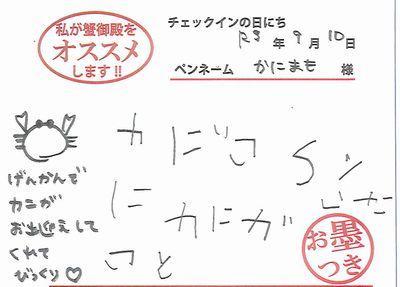 私が蟹御殿を
オススメ
します!!
チェックインの日にち
R3年9月10日
ペンネーム かにまも 様
カにご
に カにガ
こと
げんかんで
カニが
お出迎えして
くれて
びっくり♡
お墨
つき